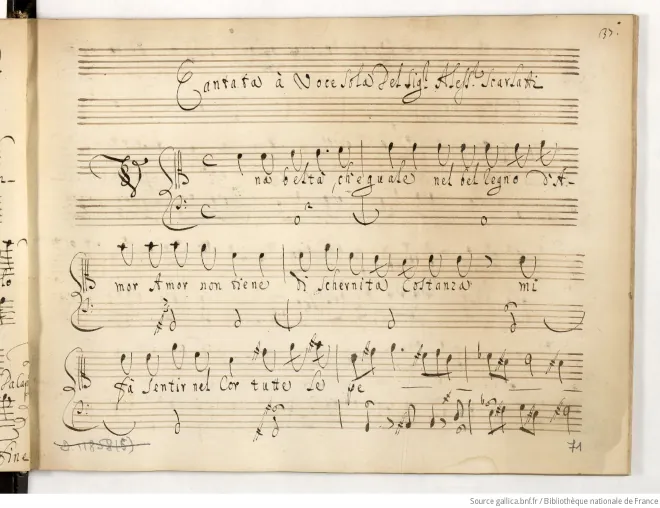 137.
Cantata à Voce Sola Del Sig.r Aless.o Scarlatti
Una beltà ch'eguale nel bel Regno D'A-
mor Amor non tiene di schernita Costanza mi
fà sentir nel Cor tutte le pe
71
Source gallica.bnf.fr / Bibliothèque nationale de France